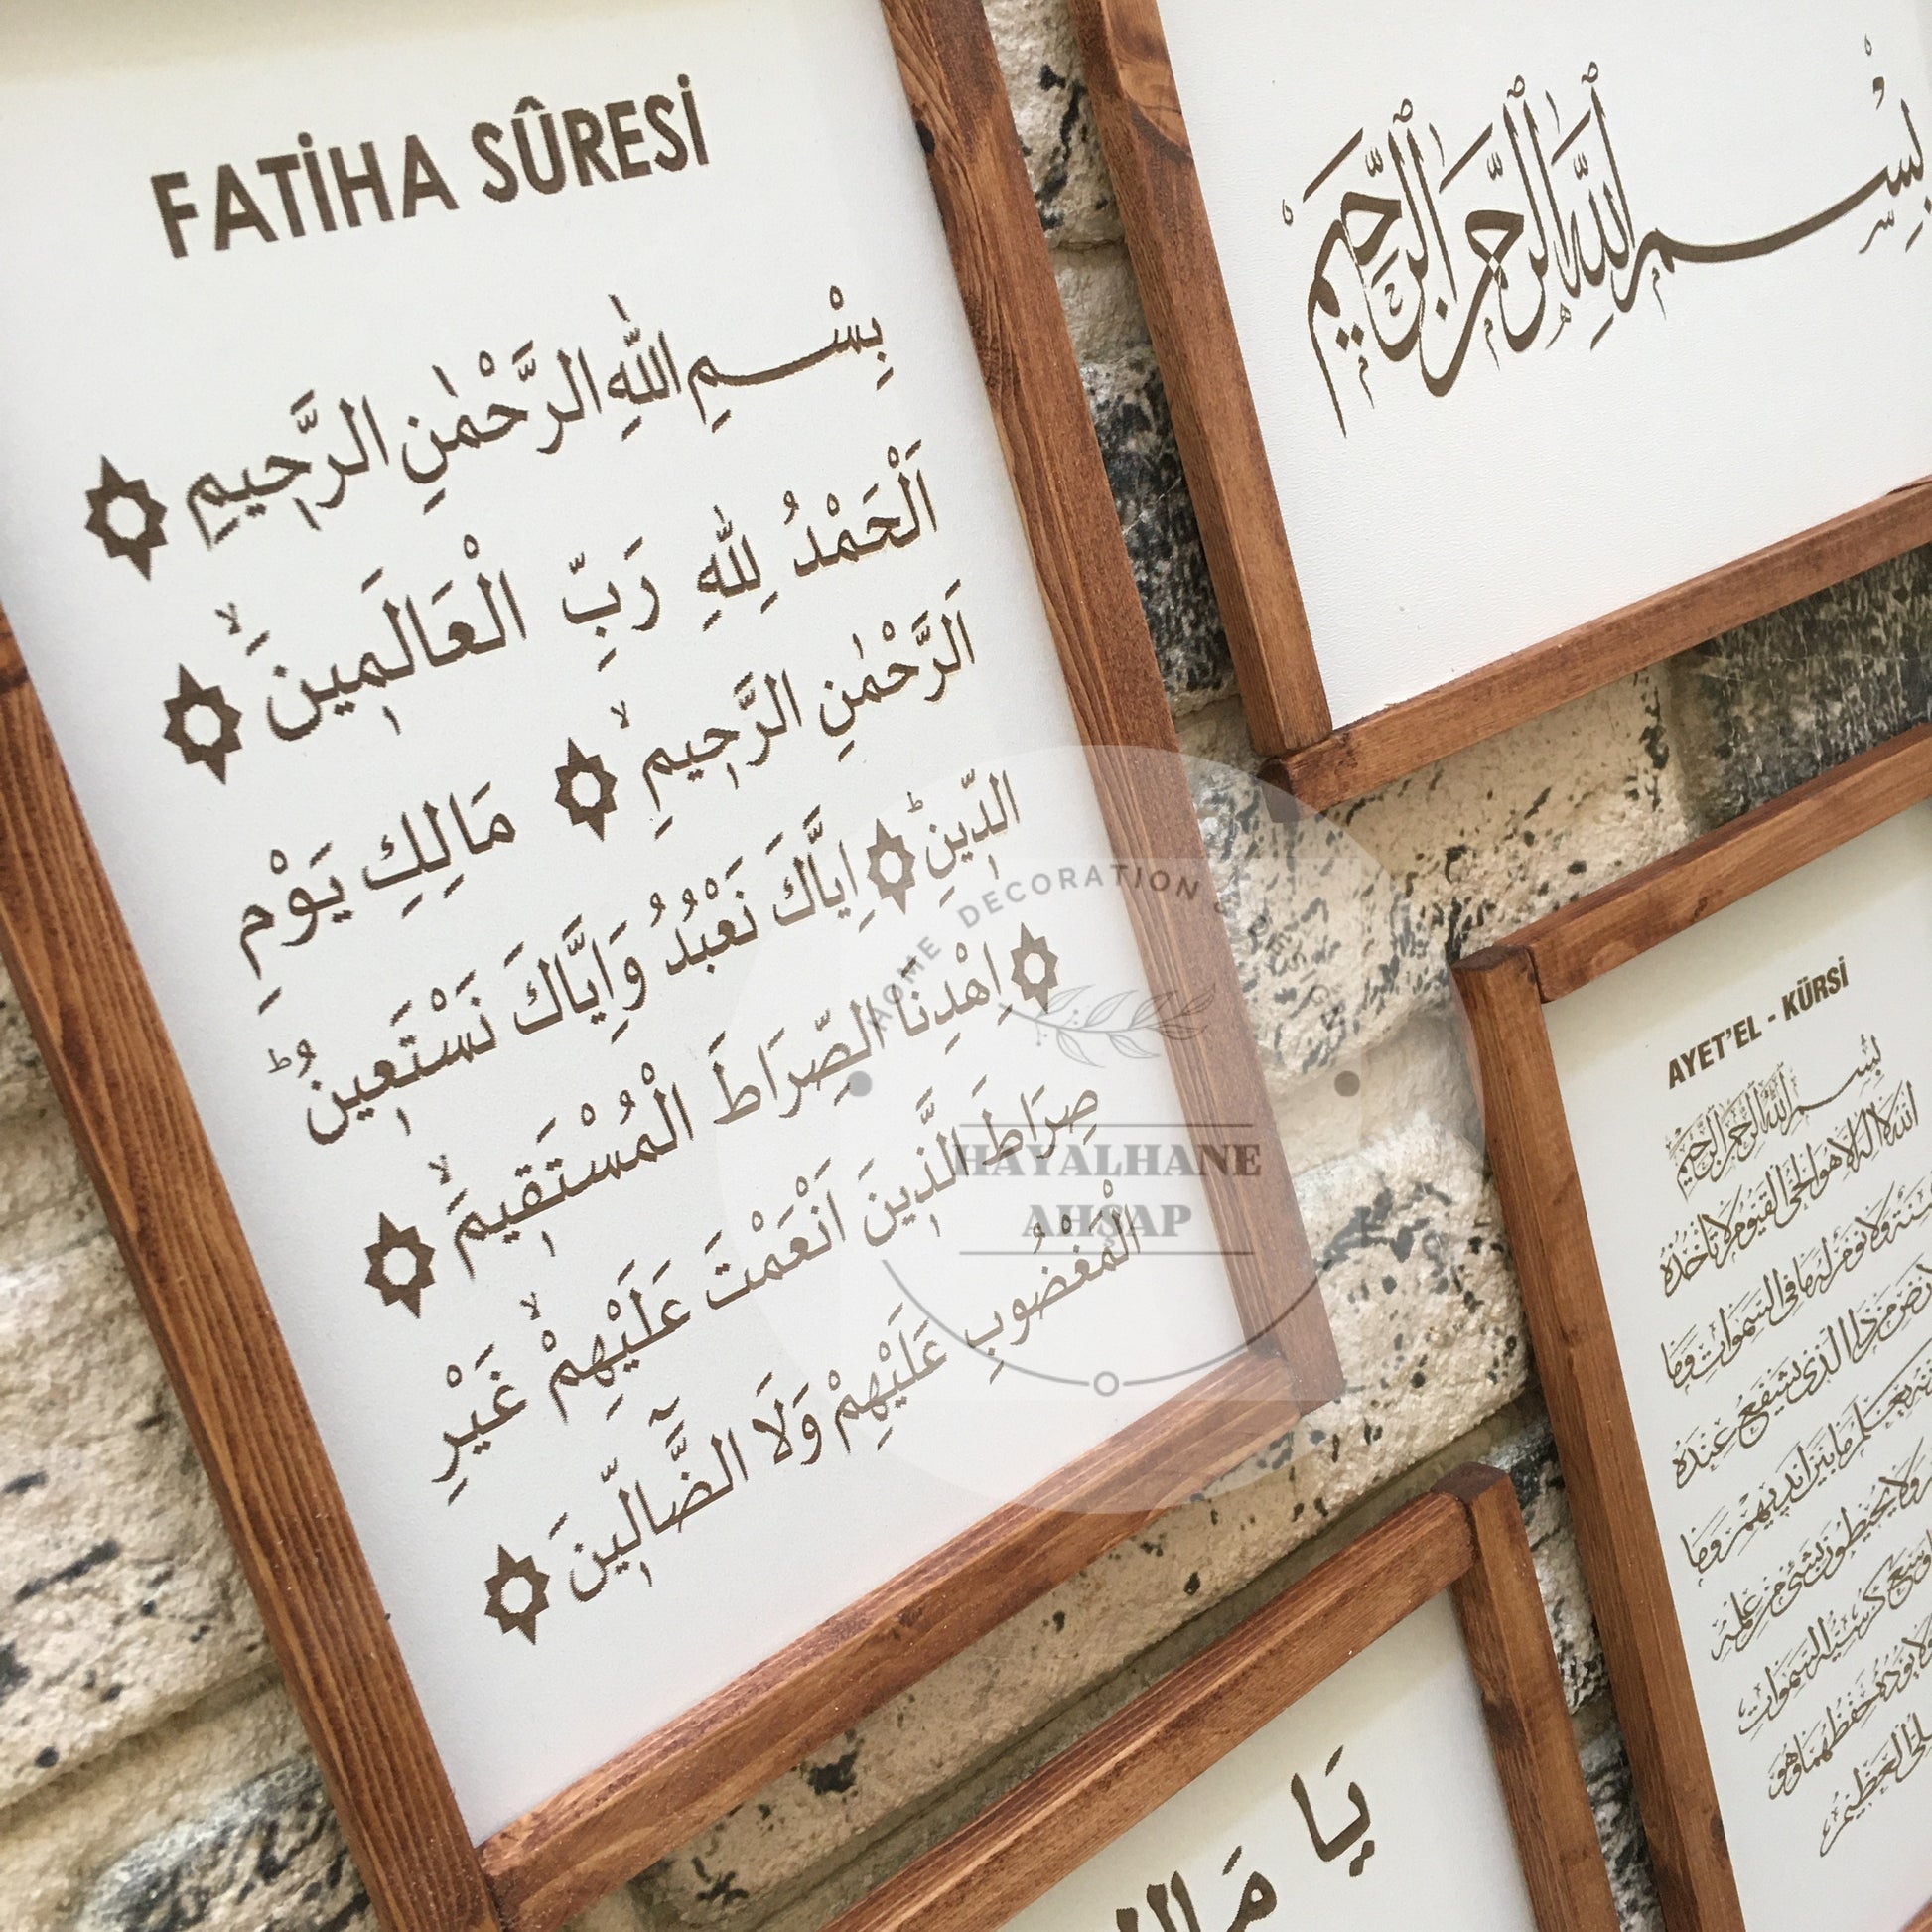 FATİHA SÛRESİ
بِسْــــمِ اللّٰهِ الرَّحْمٰنِ الرَّحٖيمِ
اَلْحَمْدُ لِلّٰهِ رَبِّ الْعَالَمٖينَۙ
اَلرَّحْمٰنِ الرَّحٖيمِۙ مَالِكِ يَوْمِ
الدّٖينِؕ اِيَّاكَ نَعْبُدُ وَاِيَّاكَ نَسْتَعٖينُؕ
اِهْدِنَا الصِّرَاطَ الْمُسْتَقٖيمَۙ
صِرَاطَ الَّذٖينَ اَنْعَمْتَ عَلَيْهِمْۙ غَيْرِ
الْمَغْضُوبِ عَلَيْهِمْ وَلَا الضَّٓالّٖينَ
بِسْمِ ٱللَّهِ ٱلرَّحْمَٰنِ ٱلرَّحِيمِ
AYET'EL - KÜRSİ
بِسْمِ اللّٰهِ الرَّحْمٰنِ الرَّحِيمِ
اَللّٰهُ لَا اِلٰهَ اِلَّا هُوَ الْحَيُّ الْقَيُّومُ لَا تَأْخُذُهُ
سِنَةٌ وَلَا نَوْمٌ لَهُ مَا فِي السَّمٰوَاتِ وَمَا
مَنْ ذَا الَّذِي يَشْفَعُ عِنْدَهُ
يَعْلَمُ مَا بَيْنَ اَيْدِيهِمْ وَمَا
وَلَا يُحِيطُونَ بِشَيْءٍ مِنْ عِلْمِهِ
وَسِعَ كُرْسِيُّهُ السَّمٰوَاتِ
حِفْظُهُمَا وَهُوَ
الْعَظِيمُ
يَا
HOME DECORATION
HAYALHANE
AHŞAP